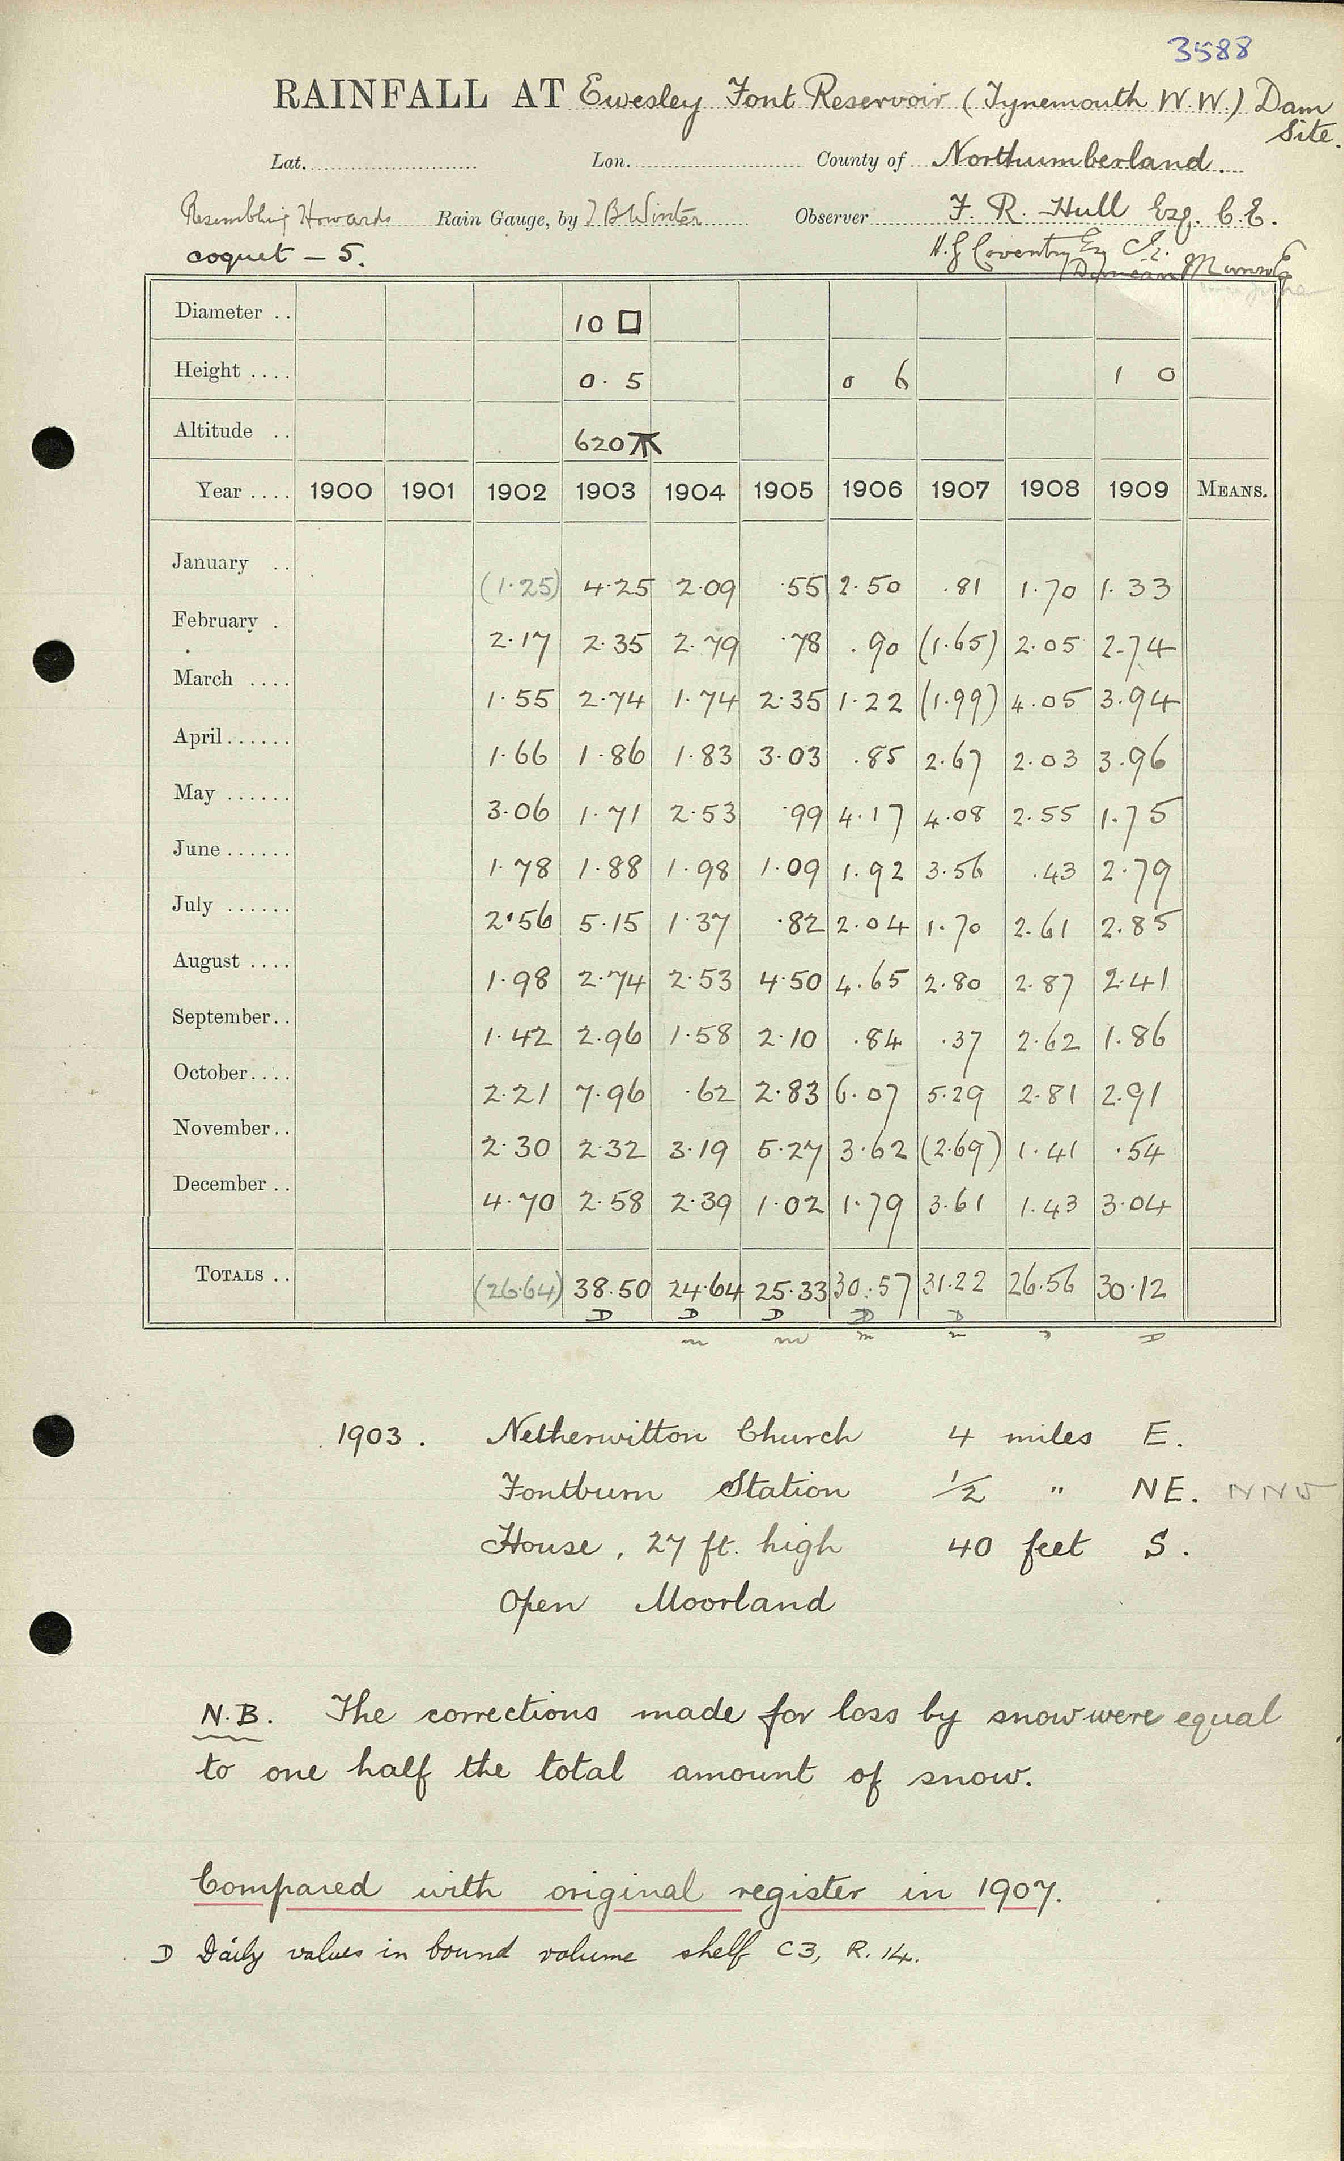 3588
RAINFALL AT Ewesley Font Reservoir (Tynemouth W.W.) Dam Site.
Lat. Lon. County of Northumberland.
Resembling Howards Rain Gauge, by J B Winter Observer F. R. Hull Esq. C.E.
coquet - 5. H. G Coventry Esq C.E.
Duncan
Diameter .. 10 □
Height .... 0. 5 0 6 1 0
Altitude .. 620
Year .... 1900 1901 1902 1903 1904 1905 1906 1907 1908 1909 MEANS.
January .. (1.25) 4.25 2.09 .55 2.50 .81 1.70 1.33
February . 2.17 2.35 2.79 .78 .90 (1.65) 2.05 2.74
March .... 1.55 2.74 1.74 2.35 1.22 (1.99) 4.05 3.94
April...... 1.66 1.86 1.83 3.03 .85 2.67 2.03 3.96
May ...... 3.06 1.71 2.53 .99 4.17 4.08 2.55 1.75
June...... 1.78 1.88 1.98 1.09 1.92 3.56 .43 2.79
July ...... 2.56 5.15 1.37 .82 2.04 1.70 2.61 2.85
August .... 1.98 2.74 2.53 4.50 4.65 2.80 2.87 2.41
September.. 1.42 2.96 1.58 2.10 .84 .37 2.62 1.86
October.... 2.21 7.96 .62 2.83 6.07 5.29 2.81 2.91
November.. 2.30 2.32 3.19 5.27 3.62 (2.69) 1.41 .54
December .. 4.70 2.58 2.39 1.02 1.79 3.61 1.43 3.04
TOTALS .. (26.64) 38.50 24.64 25.33 30.57 31.22 26.56 30.12
D D D D D
m m m m D D
1903. Netherwitton Church 4 miles E.
Fontburn Station ½ " NE. NNW
House, 27 ft. high 40 feet S.
Open Moorland
N.B. The corrections made for loss by snow were equal
to one half the total amount of snow.
Compared with original register in 1907.
D Daily values in bound volume shelf C3, R. 14.